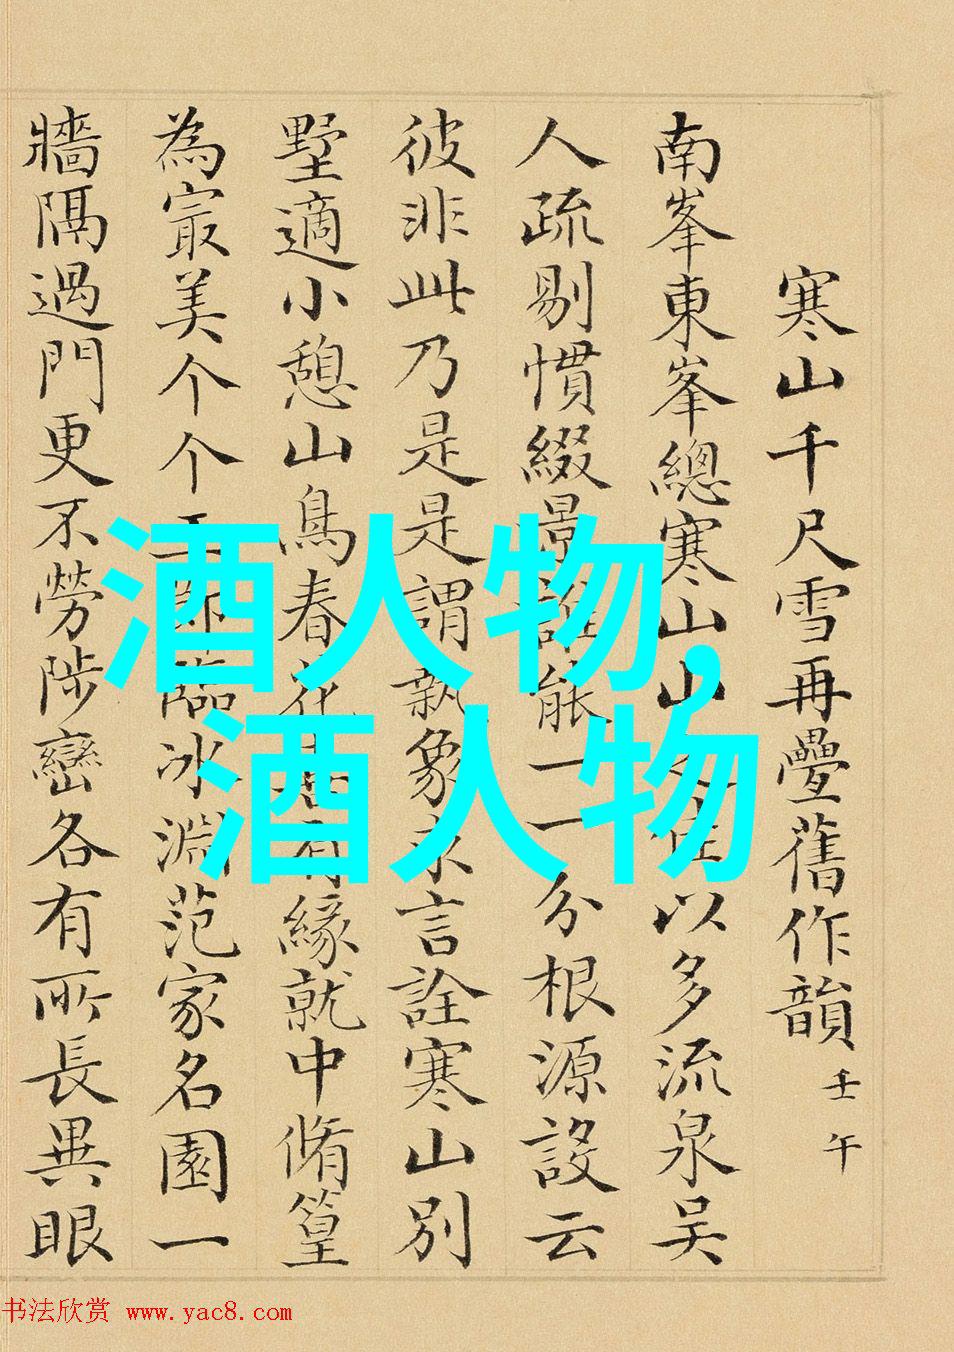 酒人物,
酒人物
寒山千尺雪再疊舊作韻 壬午
南峯東峯總寒山山之佳以多流泉吴
人疏剔慣綴景誰能一一分根源設云
彼非此乃是是謂執象求言詮寒山別
墅適小憩山鳥春花有緣就中脩篁
為最美个个臨冰淵范家名園一
牆隔過門更不勞陟巒各有所長異眼
书法欣赏 www.yac8.com